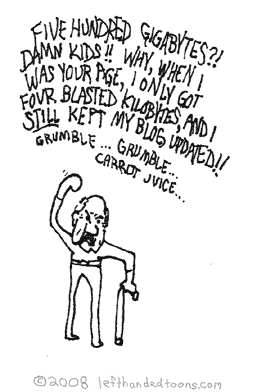 FIVE HUNDRED GIGABYTES?!
DAMN KIDS!! WHY, WHEN I
WAS YOUR AGE, I ONLY GOT
FOUR BLASTED KILOBYTES, AND I
STILL KEPT MY BLOG UPDATED!!
GRUMBLE... GRUMBLE...
CARROT JUICE...
©2008 lefthandedtoons.com